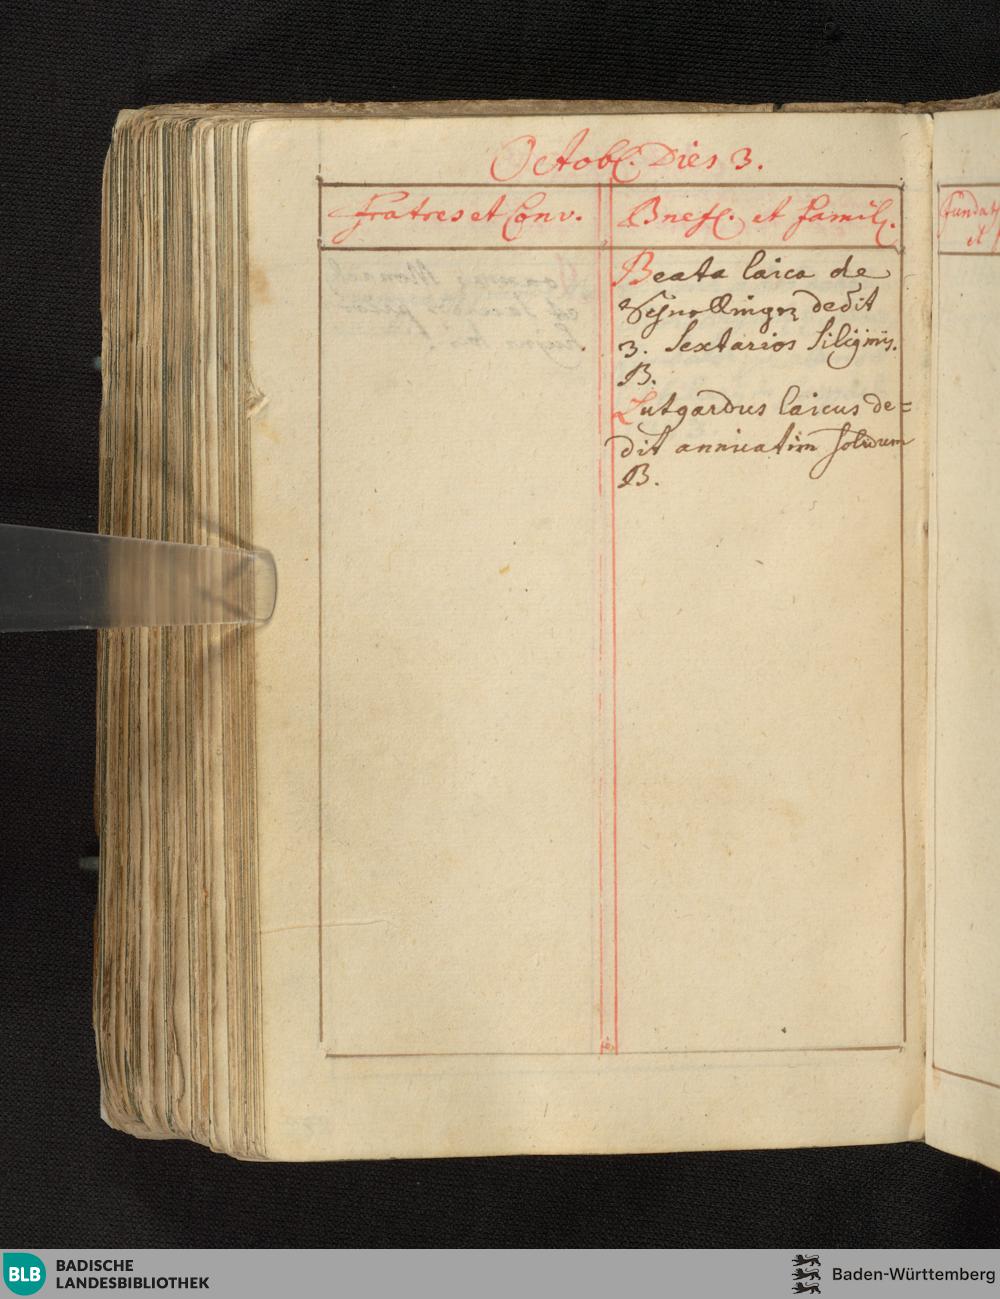 Octobr. Dies 3.
Fratres et Conv.
Bnef. et famil.
Beata laica de
dedit
3. Sextarios siliginis.
B.
Lutgardus laicus de=
dit annuatim solidum
B.
Fundat
et
BLB BADISCHE
LANDESBIBLIOTHEK
Baden-Württemberg